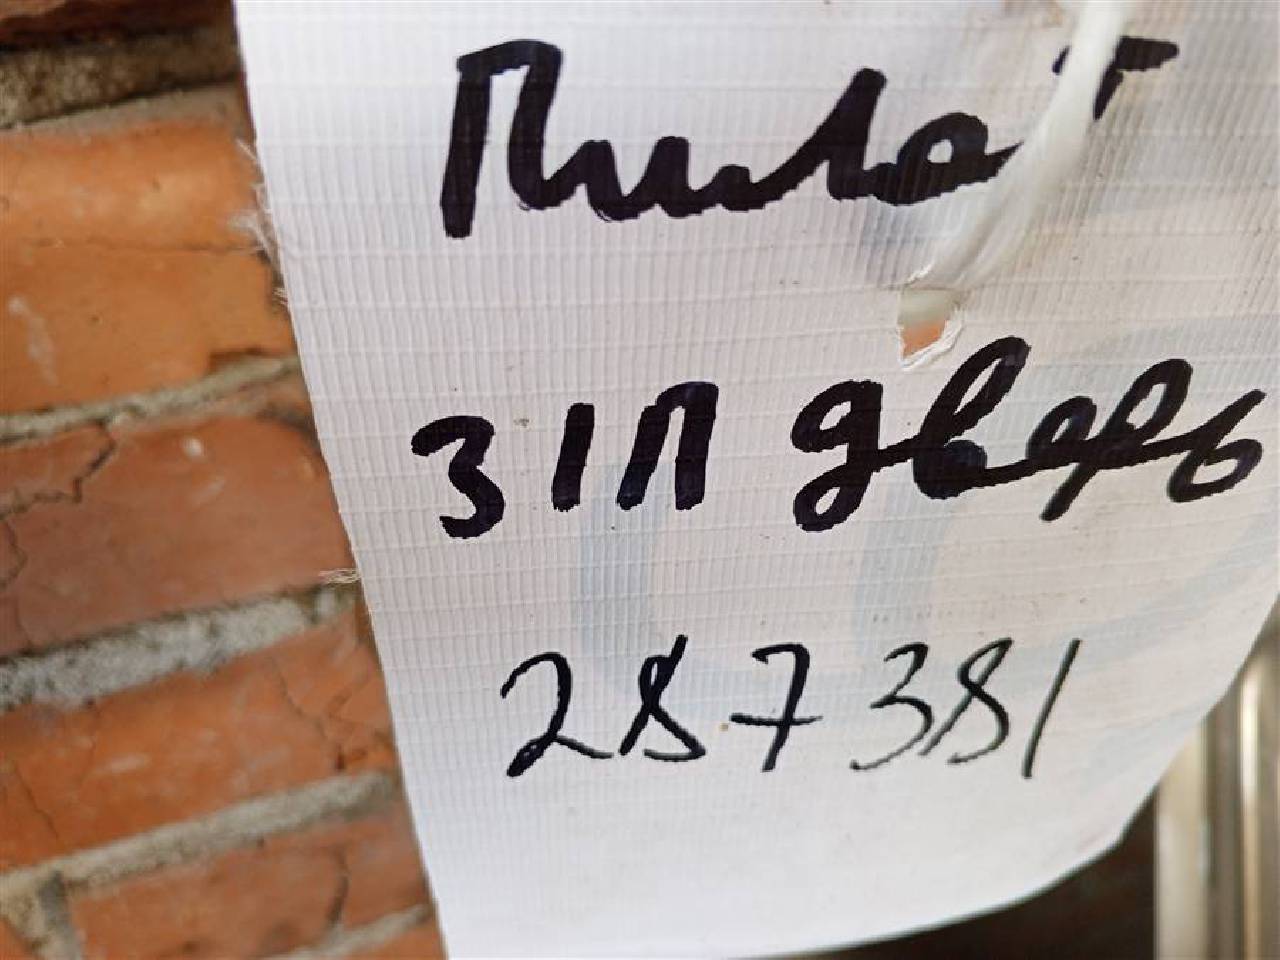 Пилот
З/П дверь
287381